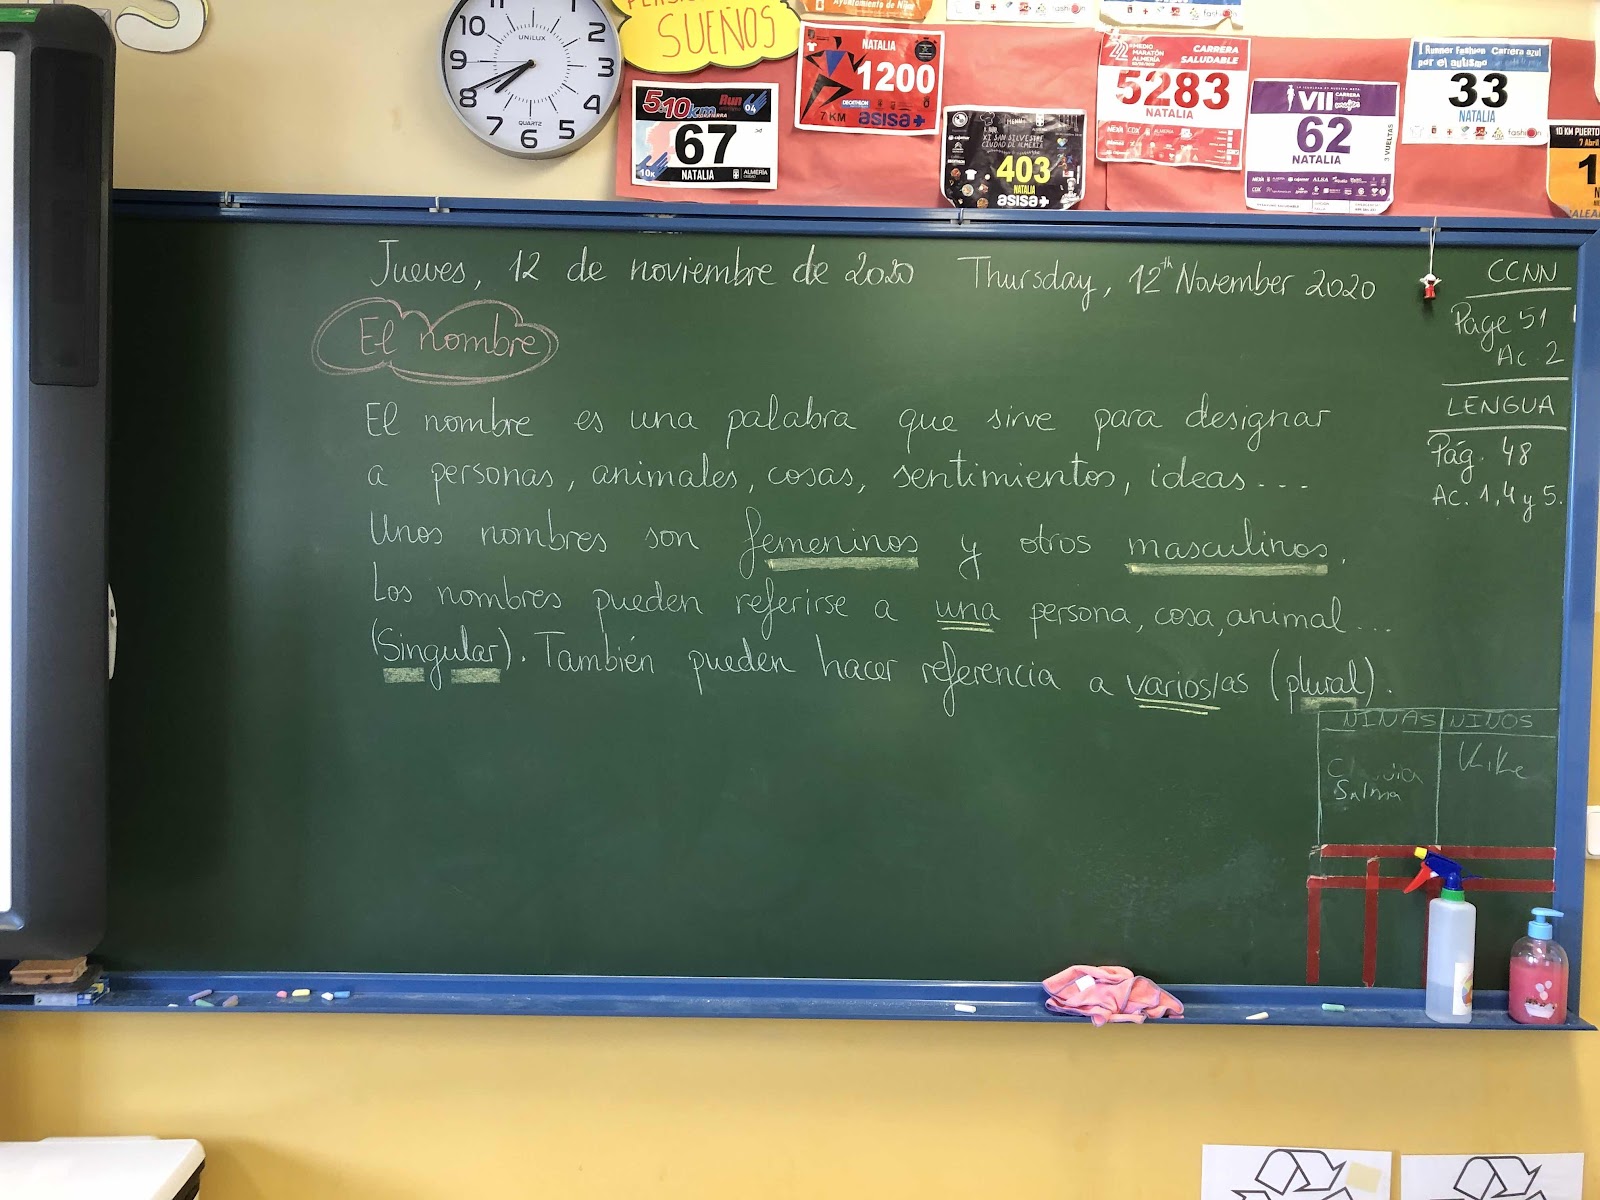 SUEÑOS
11 1
10 UNiLUX 2
9 3
8 4
7 QUARTZ 5
6
5 10km Run 04
67
10K NATALIA ALMERÍA CIUDAD
NATALIA
1200
DECATHLON
7 KM asisa+
XI SAN SILVESTRE
CIUDAD DE ALMERÍA
403
NATALIA
asisa+
MEDIO MARATÓN ALMERÍA
CARRERA SALUDABLE
5283
NATALIA
VII CARRERA
62
NATALIA
3 VUELTAS
I Runner Fashion Carrera azul
por el autismo
33
NATALIA
fashion
10 KM PUERTO
7 Abril
Jueves, 12 de noviembre de 2020 Thursday, 12th November 2020
El nombre
El nombre es una palabra que sirve para designar
a personas, animales, cosas, sentimientos, ideas...
Unos nombres son femeninos y otros masculinos.
Los nombres pueden referirse a una persona, cosa, animal...
(Singular). También pueden hacer referencia a varios/as (plural).
CCNN
Page 51
Ac. 2
LENGUA
Pág. 48
Ac. 1, 4 y 5.
NIÑAS NIÑOS
Kike
Salma